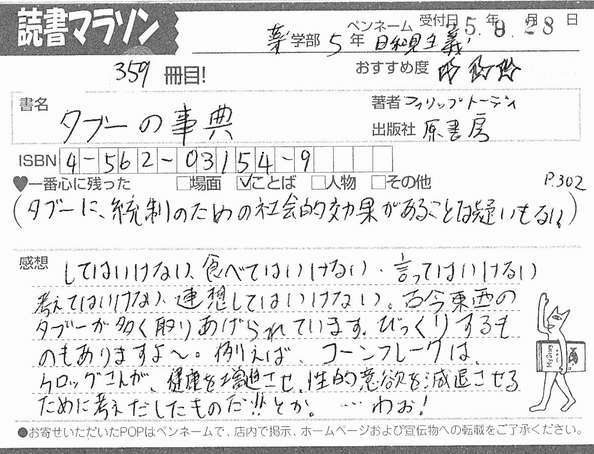 読書マラソン
ペンネーム 受付日 5.年 9.月 28日
薬学部 5年 日和見主義
359 冊目!
おすすめ度 ☆☆☆
書名 タブーの事典
著者 フィリップ・トーディ
出版社 原書房
ISBN 4-562-03154-9
♥一番心に残った □場面 ☑ことば □人物 □その他 P.302
(タブーに、統制のための社会的効果があることは疑いもない)
感想 してはいけない、食べてはいけない、言ってはいけない
考えてはいけない、連想してはいけない。古今東西の
タブーが多く取りあげられています。びっくりするも
のもありますよ〜。例えば、コーンフレークは、
ケロッグさんが、健康を増進させ、性的意欲を減退させる
ために考えだしたものだ!!とか。…わお!
●お寄せいただいたPOPはペンネームで、店内で掲示、ホームページおよび宣伝物への転載をご了承ください。